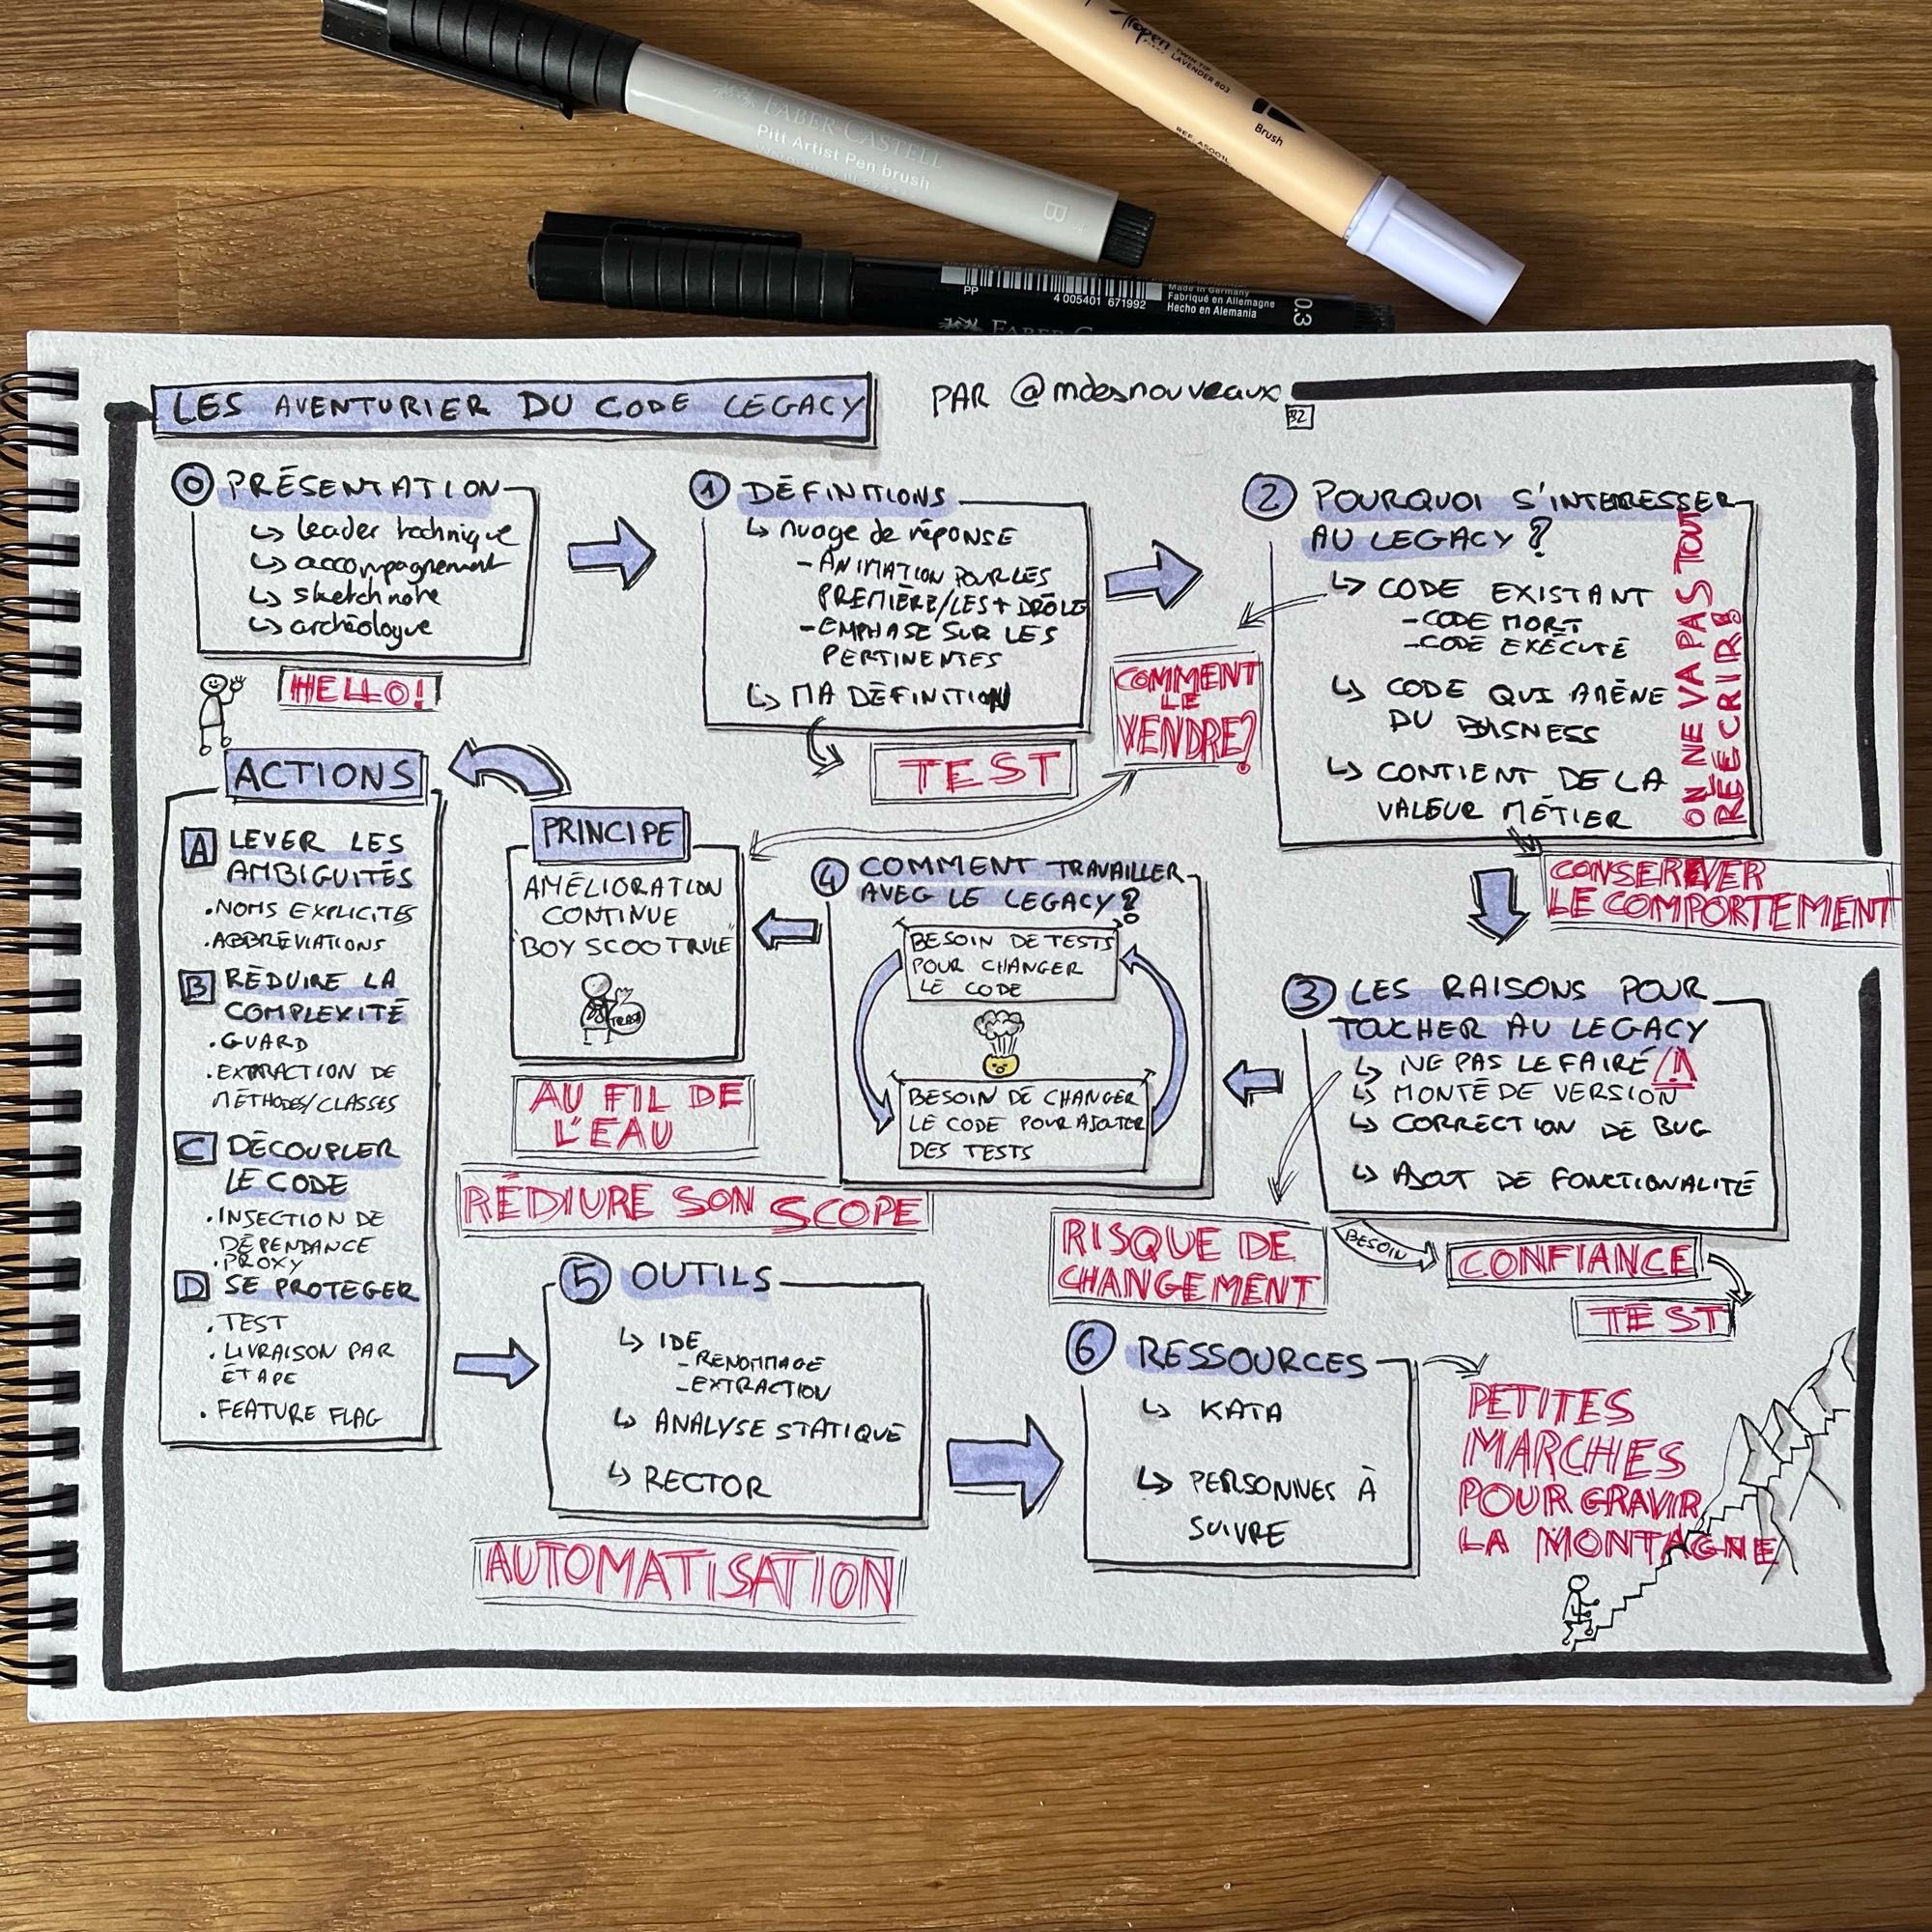 FABER CASTELL
Pitt Artist Pen brush
B
TWIN TIP
LAVENDER 803
Brush
PP
4 005401 671992
Made in Germany
Fabriqué en Allemagne
Hecho en Alemania
0.3
FABER
LES AVENTURIER DU CODE LEGACY
PAR @mdesnouveaux
0 PRÉSENTATION
↳ leader technique
↳ accompagnement
↳ sketchnote
↳ archéologue
HELLO!
1 DÉFINITIONS
↳ nuage de réponse
- ANIMATION POUR LES
PREMIÈRE/LES + DRÔLE
- EMPHASE SUR LES
PERTINENTES
↳ MA DÉFINITION
TEST
2 POURQUOI S'INTERESSER
AU LEGACY ?
↳ CODE EXISTANT
- CODE MORT
- CODE EXÉCUTÉ
↳ CODE QUI AMÈNE
DU BUISNESS
↳ CONTIENT DE LA
VALEUR MÉTIER
ON NE VA PAS TOUT
RÉÉCRIRE
COMMENT
LE
VENDRE?
CONSERVER
LE COMPORTEMENT
3 LES RAISONS POUR
TOUCHER AU LEGACY
↳ NE PAS LE FAIRE ⚠
↳ MONTÉ DE VERSION
↳ CORRECTION DE BUG
↳ AJOUT DE FONCTIONALITÉ
RISQUE DE
CHANGEMENT
BESOIN
CONFIANCE
TEST
4 COMMENT TRAVAILLER
AVEC LE LEGACY ?
BESOIN DE TESTS
POUR CHANGER
LE CODE
BESOIN DE CHANGER
LE CODE POUR AJOUTER
DES TESTS
RÉDIURE SON SCOPE
PRINCIPE
AMÉLIORATION
CONTINUE
"BOY SCOOT RULE"
TRASH
AU FIL DE
L'EAU
ACTIONS
A LEVER LES
AMBIGUITÉS
. NOMS EXPLICITES
. ABBRÉVIATIONS
B RÉDUIRE LA
COMPLEXITÉ
. GUARD
. EXTRACTION DE
MÉTHODES/CLASSES
C DÉCOUPLER
LE CODE
. INJECTION DE
DÉPENDANCE
. PROXY
D SE PROTEGER
. TEST
. LIVRAISON PAR
ÉTAPE
. FEATURE FLAG
5 OUTILS
↳ IDE
- RENOMMAGE
- EXTRACTION
↳ ANALYSE STATIQUE
↳ RECTOR
AUTOMATISATION
6 RESSOURCES
↳ KATA
↳ PERSONNES À
SUIVRE
PETITES
MARCHES
POUR GRAVIR
LA MONTAGNE